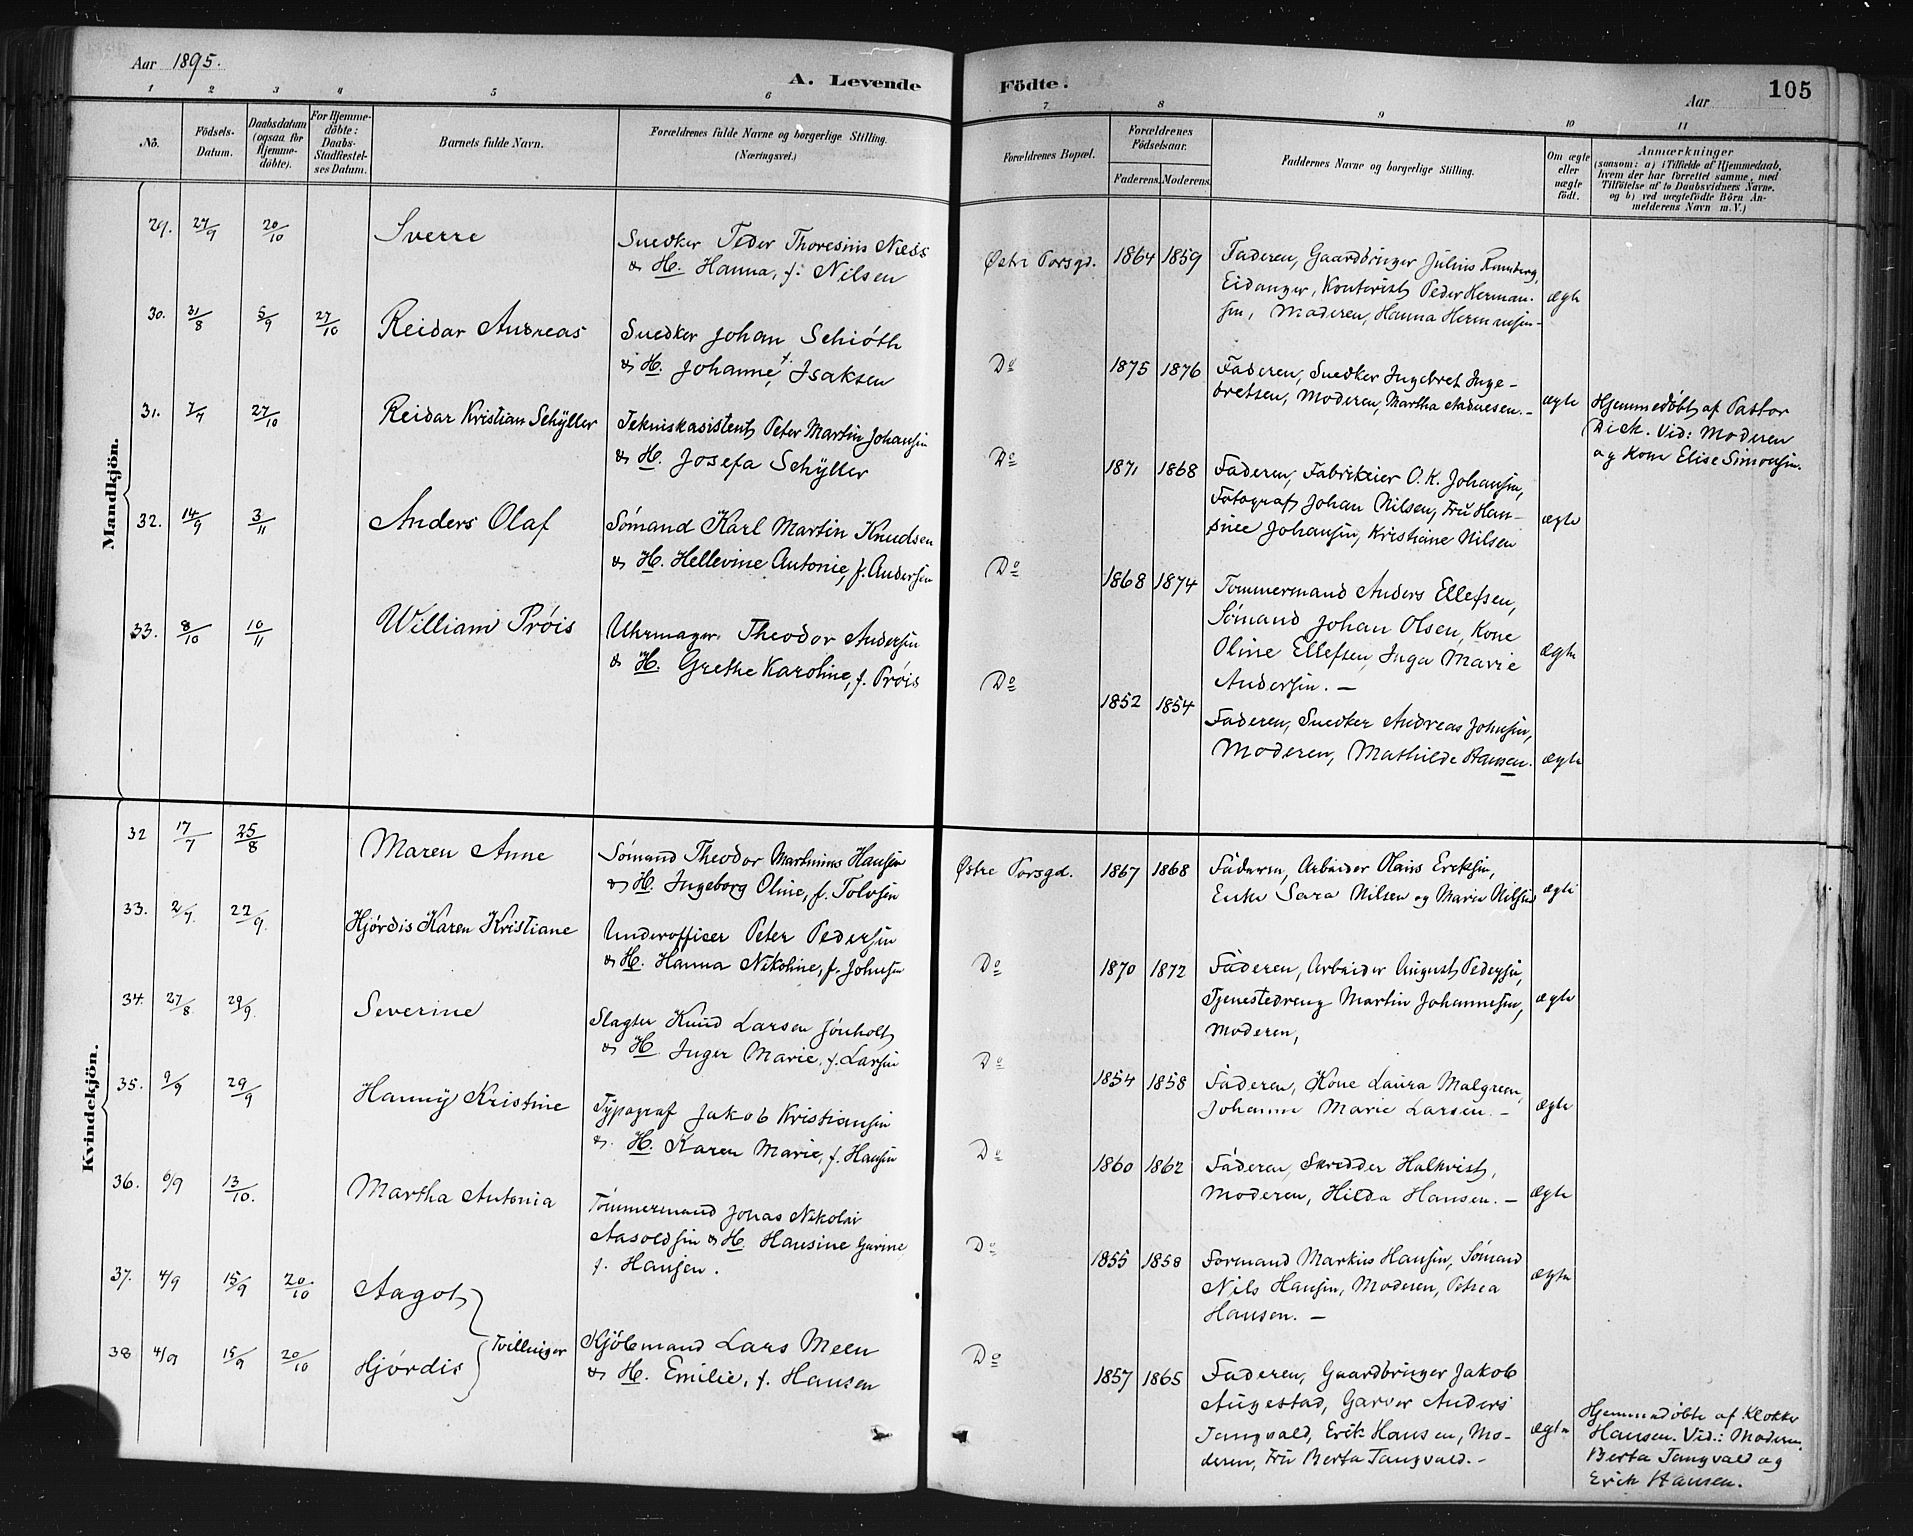 Aar 1895.
A. Levende
1 2 3 4 5 6
No.
Födsels-Datum.
Daabsdatum (ogsaa for Hjemme-döbte).
For Hjemme-döbte: Daabs-Stadfæstel-ses Datum.
Barnets fulde Navn.
Forældrenes fulde Navne og borgerlige Stilling.
(Næringsvei.)
Mandkjön.
29. 27/9 20/10 Sverre
Snedker Peder Thoresius Næss
& H. Hanna, f. Nilsen
30. 31/8 5/9 27/10 Reidar Andreas
Snedker Johan Schiöth
& H. Johanne, f. Isaksen
31. 7/9 27/10 Reidar Kristian Schÿller
Tekniskasistent Peter Martin Johansen
& H. Josefa Schÿller
32. 14/9 3/11 Anders Olaf
Sömand Karl Martin Knudsen
& H. Hellevine Antonie, f. Andersen
33. 8/10 10/11 William Prøis
Uhrmager Theodor Andersen
& H. Grethe Karoline, f. Prøis
Kvindekjön.
32 17/7 25/8 Maren Anne
Sömand Theodor Martinius Hansen
& H. Ingeborg Oline, f. Tolvsen
33. 2/7 22/9. Hjördis Karen Kristiane
Underofficer Peter Pedersen
& H. Hanna Nikoline, f. Johnsen
34. 27/8 29/9. Severine
Slagter Knud Larsen Jönholt
& H. Inger Marie, f. Larsen
35. 9/9 29/9 Hannÿ Kristine
Tÿpograf Jakob Kristiansen
& H. Karen Marie, f. Hansen
36. 6/9 13/10. Martha Antonia
Tömmermand Jonas Nikolai
Aasoldsen & H. Hansine Gurine
f. Hansen.
37. 4/9 15/9 20/10 Aagot
38 4/9 15/9 20/10 Hjördis
Tvillinger
Kjöbmand Lars Meen
& H. Emilie, f. Hansen
Födte.
105
Aar
7 8 9 10 11
Forældrenes Bopæl.
Forældrenes Födselsaar.
Faderens. Moderens.
Faddernes Navne og borgerlige Stilling.
Om ægte eller uægte födt.
Anmærkninger
(saasom: a) i Tilfælde af Hjemmedaab,
hvem der har forrettet samme, med
Tilföielse af to Daabsvidners Navne.
og b) ved uægtefödte Börn An-
melderens Navn m. V.)
Østre Porsgd. 1864 1859
Faderen, Gaardbruger Julius Ramberg,
Eidanger, Kontorist Peder Herman-
sen, Moderen, Hanna Hermansen-
ægte
Do 1875 1876
Faderen, Snedker Ingebret Inge-
bretsen, Moderen, Martha Andresen.-
ægte
Hjemmedöbt af Pastor
Dick. Vid: Moderen
og Kone Elise Simonsen.
Do 1871 1868
Faderen, Fabrikeier O. K. Johansen,
Fotograf Johan Nilsen, Fru Han-
sine Johansen, Kristiane Nilsen
ægte
Do 1868 1874
Tömmermand Anders Ellefsen,
Sömand Johan Olsen, Kone
Oline Ellefsen, Inga Marie
Andersen. -
ægte
Do 1852 1854
Faderen, Snedker Andreas Johnsen,
Moderen, Mathilde Hansen.
ægte
Østre Porsgd. 1867 1868
Faderen, Arbeider Olaus Eriksen,
Enke Sara Nilsen og Marie Nilsen
ægte
Do 1870 1872
Faderen, Arbeider August Pedersen,
Tjenestedreng Martin Johannesen,
Moderen,
ægte
Do 1854 1858
Faderen, Kone Laura Malgreen,
Johanne Marie Larsen. -
ægte
Do 1860 1862
Faderen, Skrædder Halkvist,
Moderen, Hilda Hansen. -
ægte
Do 1855 1858
Formand Markus Hansen, Sömand
Nils Hansen, Moderen, Petrea
Hansen. -
ægte
Do 1857 1865
Faderen, Gaardbruger Jakob
Augestad, Garver Anders
Tangvald, Erik Hansen, Mo-
deren, Fru Berta Tangvald. -
ægte
Hjemmedöbte af Klokker
Hansen. Vid.: Moderen,
Berta Tangvald og
Erik Hansen.